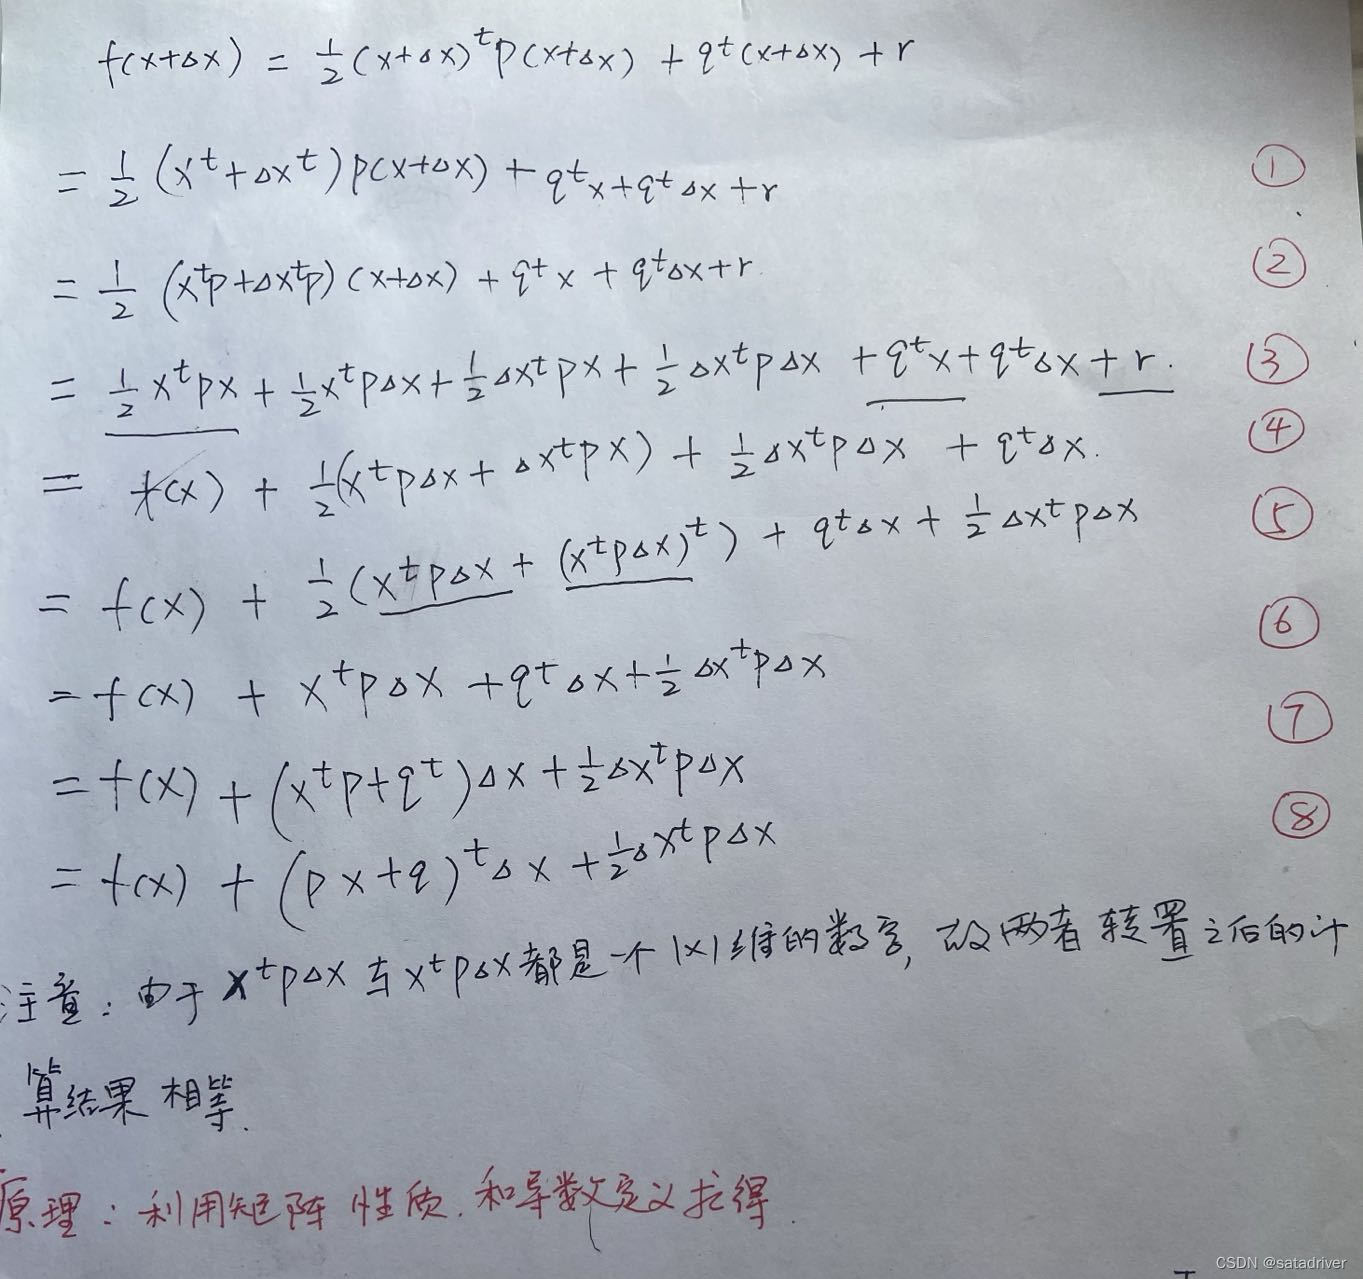 f(x+Δx) = 1/2 (x+Δx)^t P(x+Δx) + q^t(x+Δx) + r
= 1/2 (x^t+Δx^t)P(x+Δx) + q^t x+q^t Δx+r ①
= 1/2 (x^tP+Δx^tP)(x+Δx) + q^t x + q^tΔx+r ②
= 1/2 x^tPx + 1/2 x^tPΔx + 1/2 Δx^tPx + 1/2 Δx^tPΔx + q^tx + q^tΔx + r. ③
= f(x) + 1/2(x^tPΔx + Δx^tPx) + 1/2 Δx^tPΔx + q^tΔx. ④
= f(x) + 1/2(x^tPΔx + (x^tPΔx)^t) + q^tΔx + 1/2 Δx^tPΔx ⑤
= f(x) + x^tPΔx + q^tΔx + 1/2 Δx^tPΔx ⑥
= f(x) + (x^tP+q^t)Δx + 1/2 Δx^tPΔx ⑦
= f(x) + (Px+q)^tΔx + 1/2 Δx^tPΔx ⑧
注意: 由于 x^tPΔx 与 x^tPΔx 都是一个 1×1 维的数字, 故两者 转置之后的计
算结果 相等.
原理: 利用矩阵 性质. 和导数定义 求得.
CSDN @satadriver